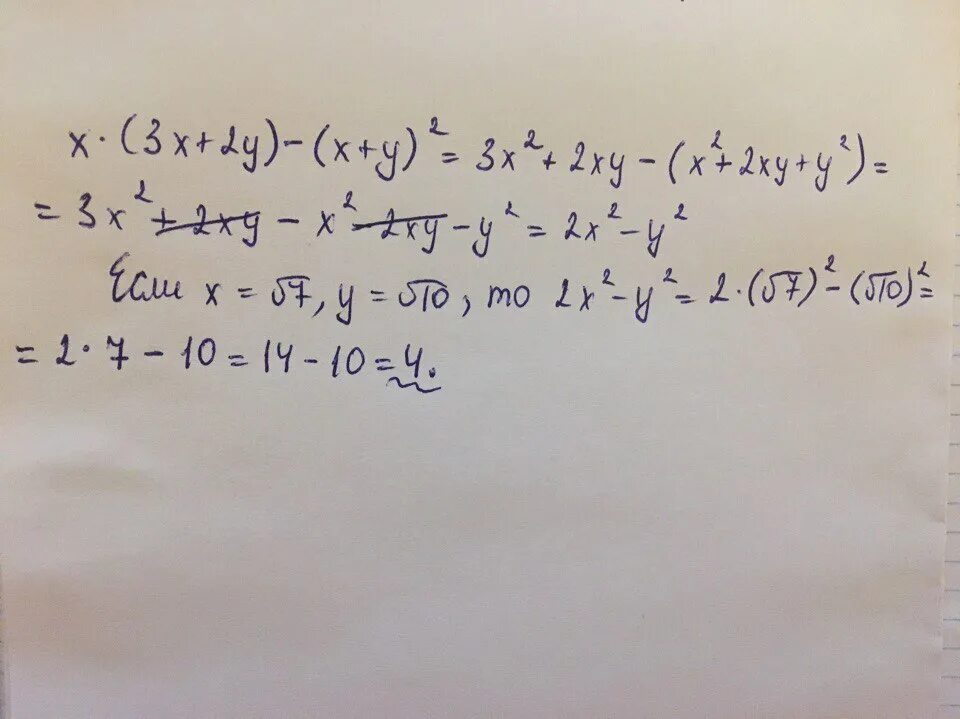 x·(3x+2y)-(x+y)²=3x²+2xy-(x²+2xy+y²)=
=3x²+2xy-x²-2xy-y²=2x²-y²
Если x=√7, y=√10, то 2x²-y²=2·(√7)²-(√10)²=
=2·7-10=14-10=4.